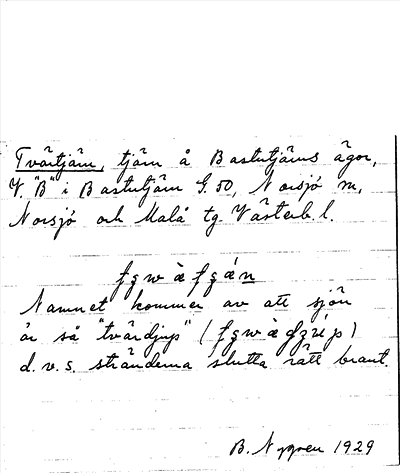 Tvärtjärn, tjärn å Bastutjärns ägor,
V. "B" i Bastutjärn G. 50, Norsjö sn,
Norsjö och Malå tg Västerb. l.
Namnet kommer av att sjön
är så "tvärdjup"
d.v.s. stränderna slutta rätt brant.
B. Nygren 1929